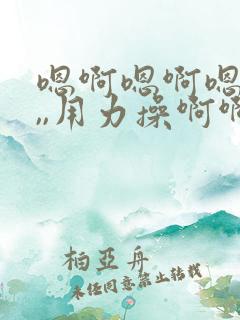 嗯啊嗯啊嗯
,,用力操啊啊
柏亞舟
未经同意禁止转载